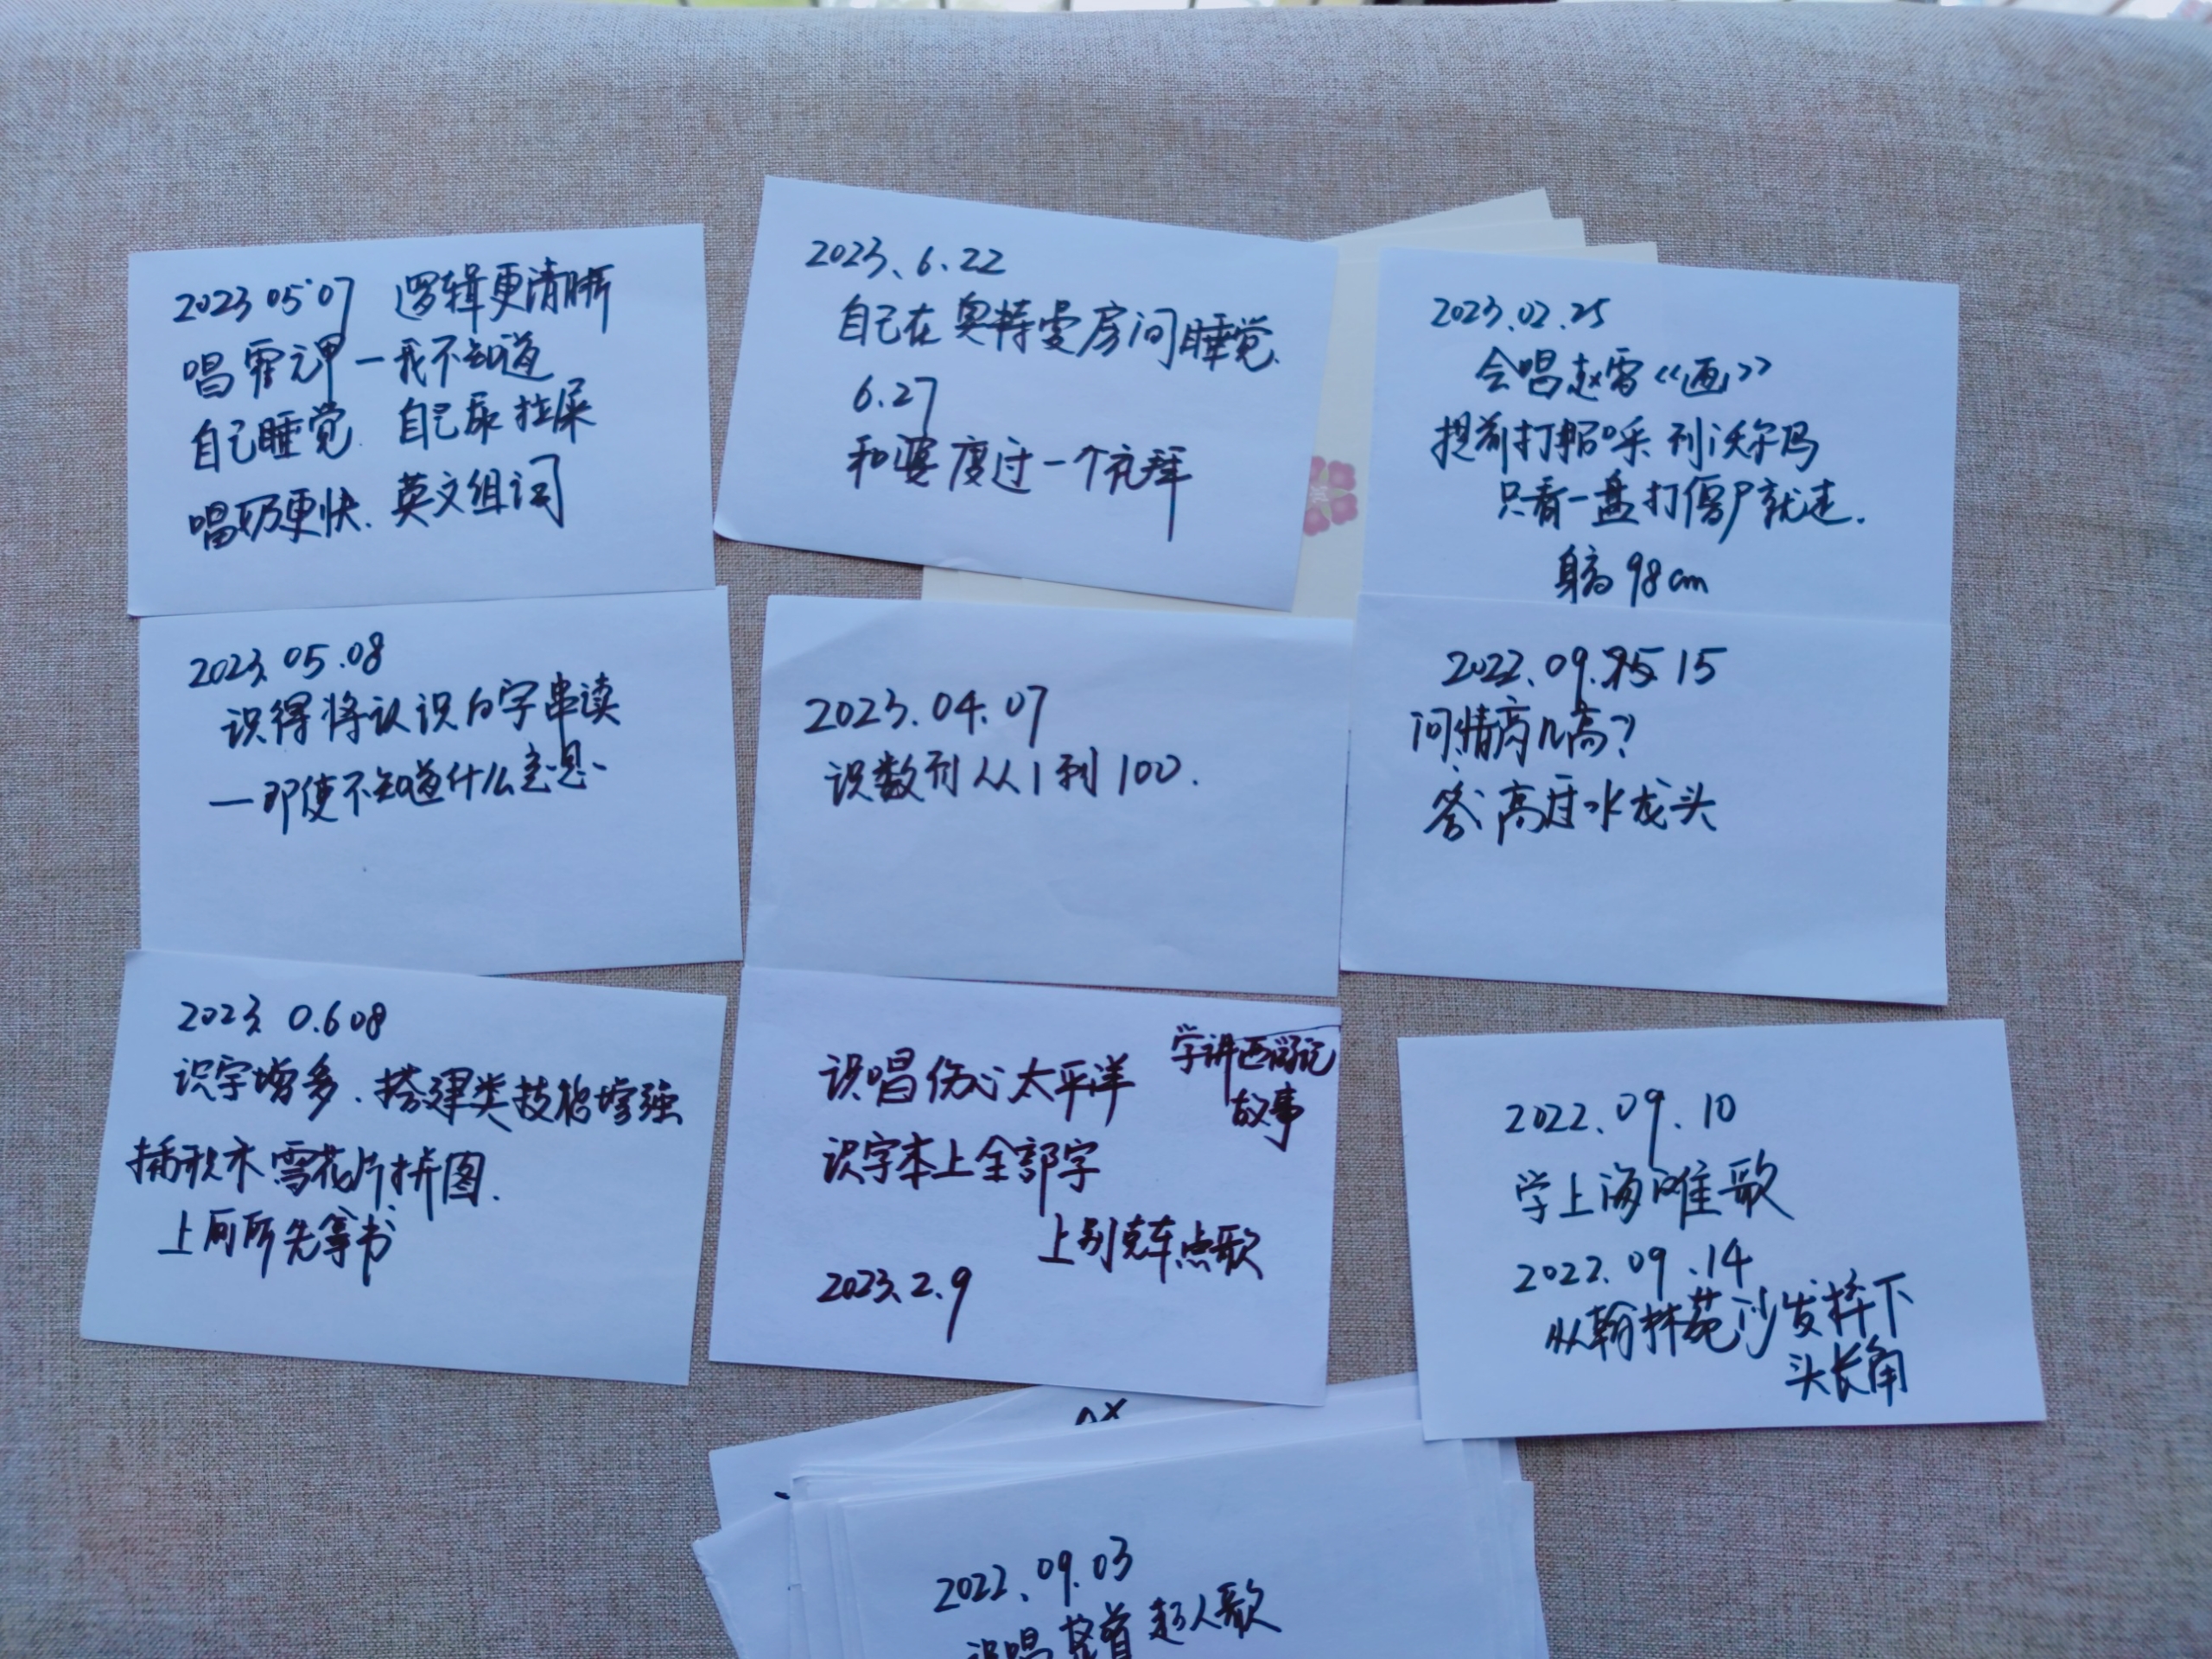 2023 05 07 逻辑更清晰
唱霍元甲一我不知道
自己睡觉. 自己尿 拉屎
唱奶更快. 英文组词
2023.6.22
自己在奥特曼房间睡觉.
6.27
和婆度过一个礼拜
2023.02.25
会唱赵雷《画》
提前打招呼 到沃尔玛
只看一盘打僵尸就走.
身高 98cm
2023.05.08
识得将认识的字串读
一即使不知道什么意思.
2023.04.07
识数到从1到100.
2022.09. 15
问:情商几高?
答:高过水龙头
2023. 0.608
识字增多. 搭建类技能增强
插积木 雪花片 拼图.
上厕所先拿书
识唱伤心太平洋
学讲西游记
故事
识字本上全部字
上别克车点歌
2023.2.9
2022.09.10
学上海滩歌
2022.09.14
从翰林苑沙发摔下
头长角
2022.09.03
识唱整首超人歌